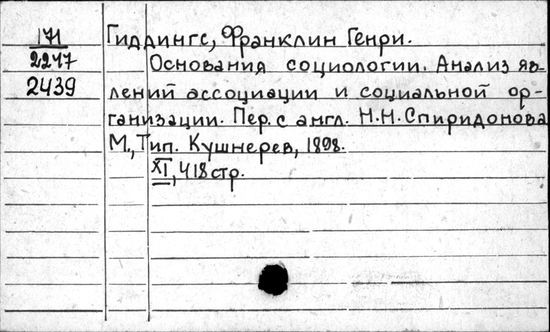 171
2247
2439
Гиддингс, Франклин Генри.
Основания социологии. Анализ яв-
лений ассоциации и социальной ор-
ганизации. Пер. с англ. Н.Н.Спиридонова
М., Тип. Кушнерев, 1898.
XI, 418 стр.